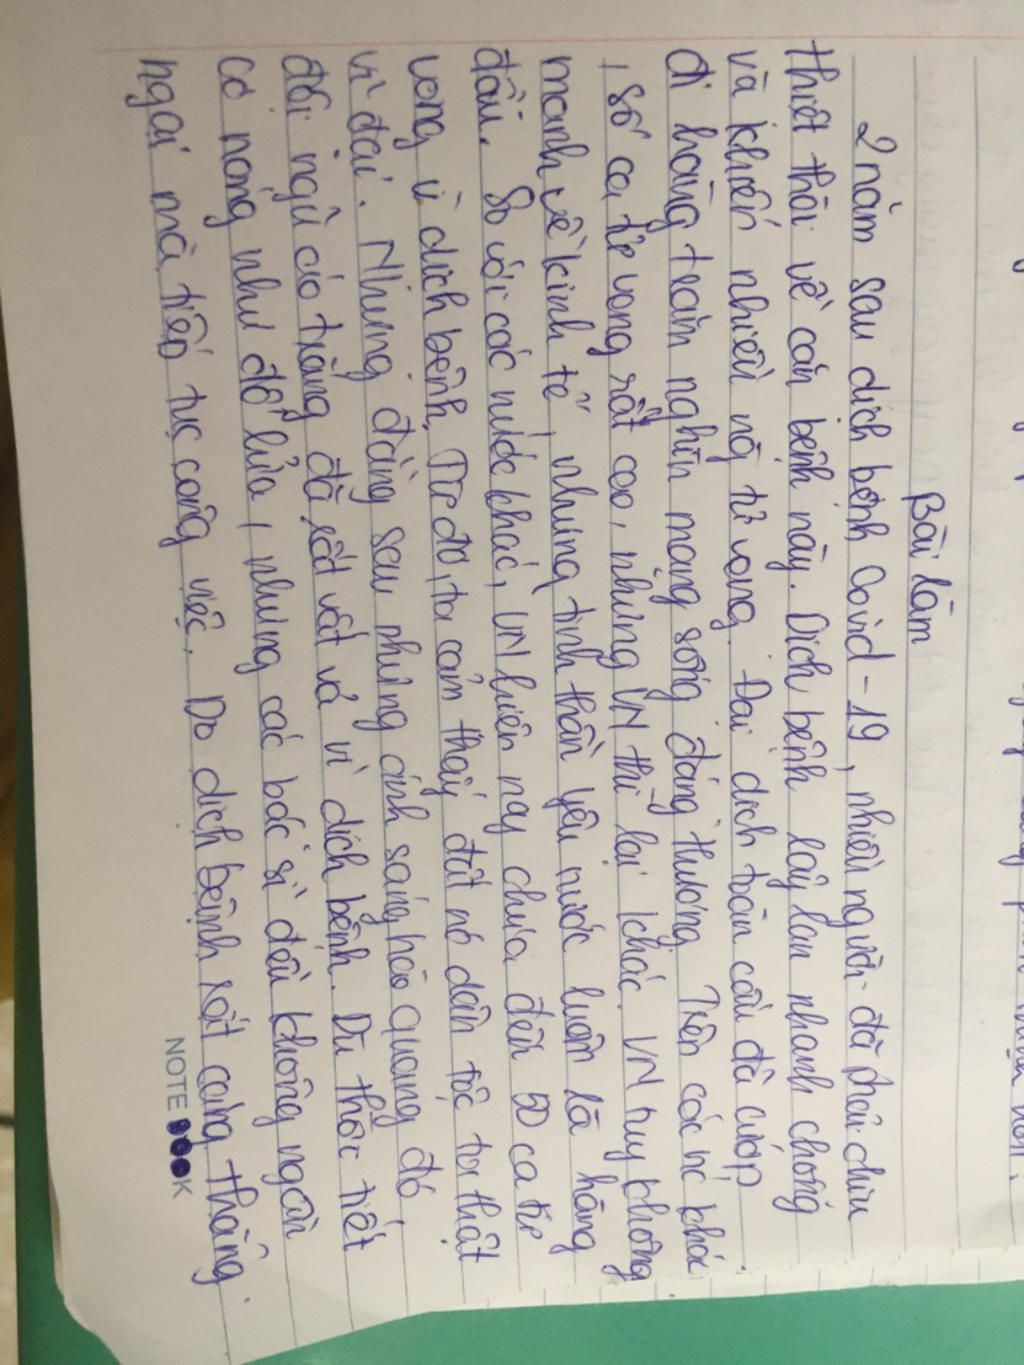 Bài làm
2 năm sau dịch bệnh Covid-19, nhiều người đã phải chịu
thiệt thòi về căn bệnh này. Dịch bệnh lây lan nhanh chóng
và khiến nhiều ng tử vong. Đại dịch toàn cầu đã cướp
đi hàng trăm nghìn mạng sống đáng thương. Trên các nc khác
, số ca tử vong rất cao, nhưng VN thì lại khác. VN tuy không
mạnh về kinh tế, nhưng tinh thần yêu nước luôn là hàng
đầu. So với các nước khác, VN hiện nay chưa đến 50 ca tử
vong vì dịch bệnh. Từ đó, ta cảm thấy đất nc dân tộc ta thật
vĩ đại. Nhưng đằng sau những ánh sáng hào quang đó,
đội ngũ áo trắng đã rất vất vả vì dịch bệnh. Dù thời tiết
có nóng như đổ lửa, nhưng các bác sĩ đều không ngần
ngại mà tiếp tục công việc. Do dịch bệnh rất căng thẳng
NOTE K